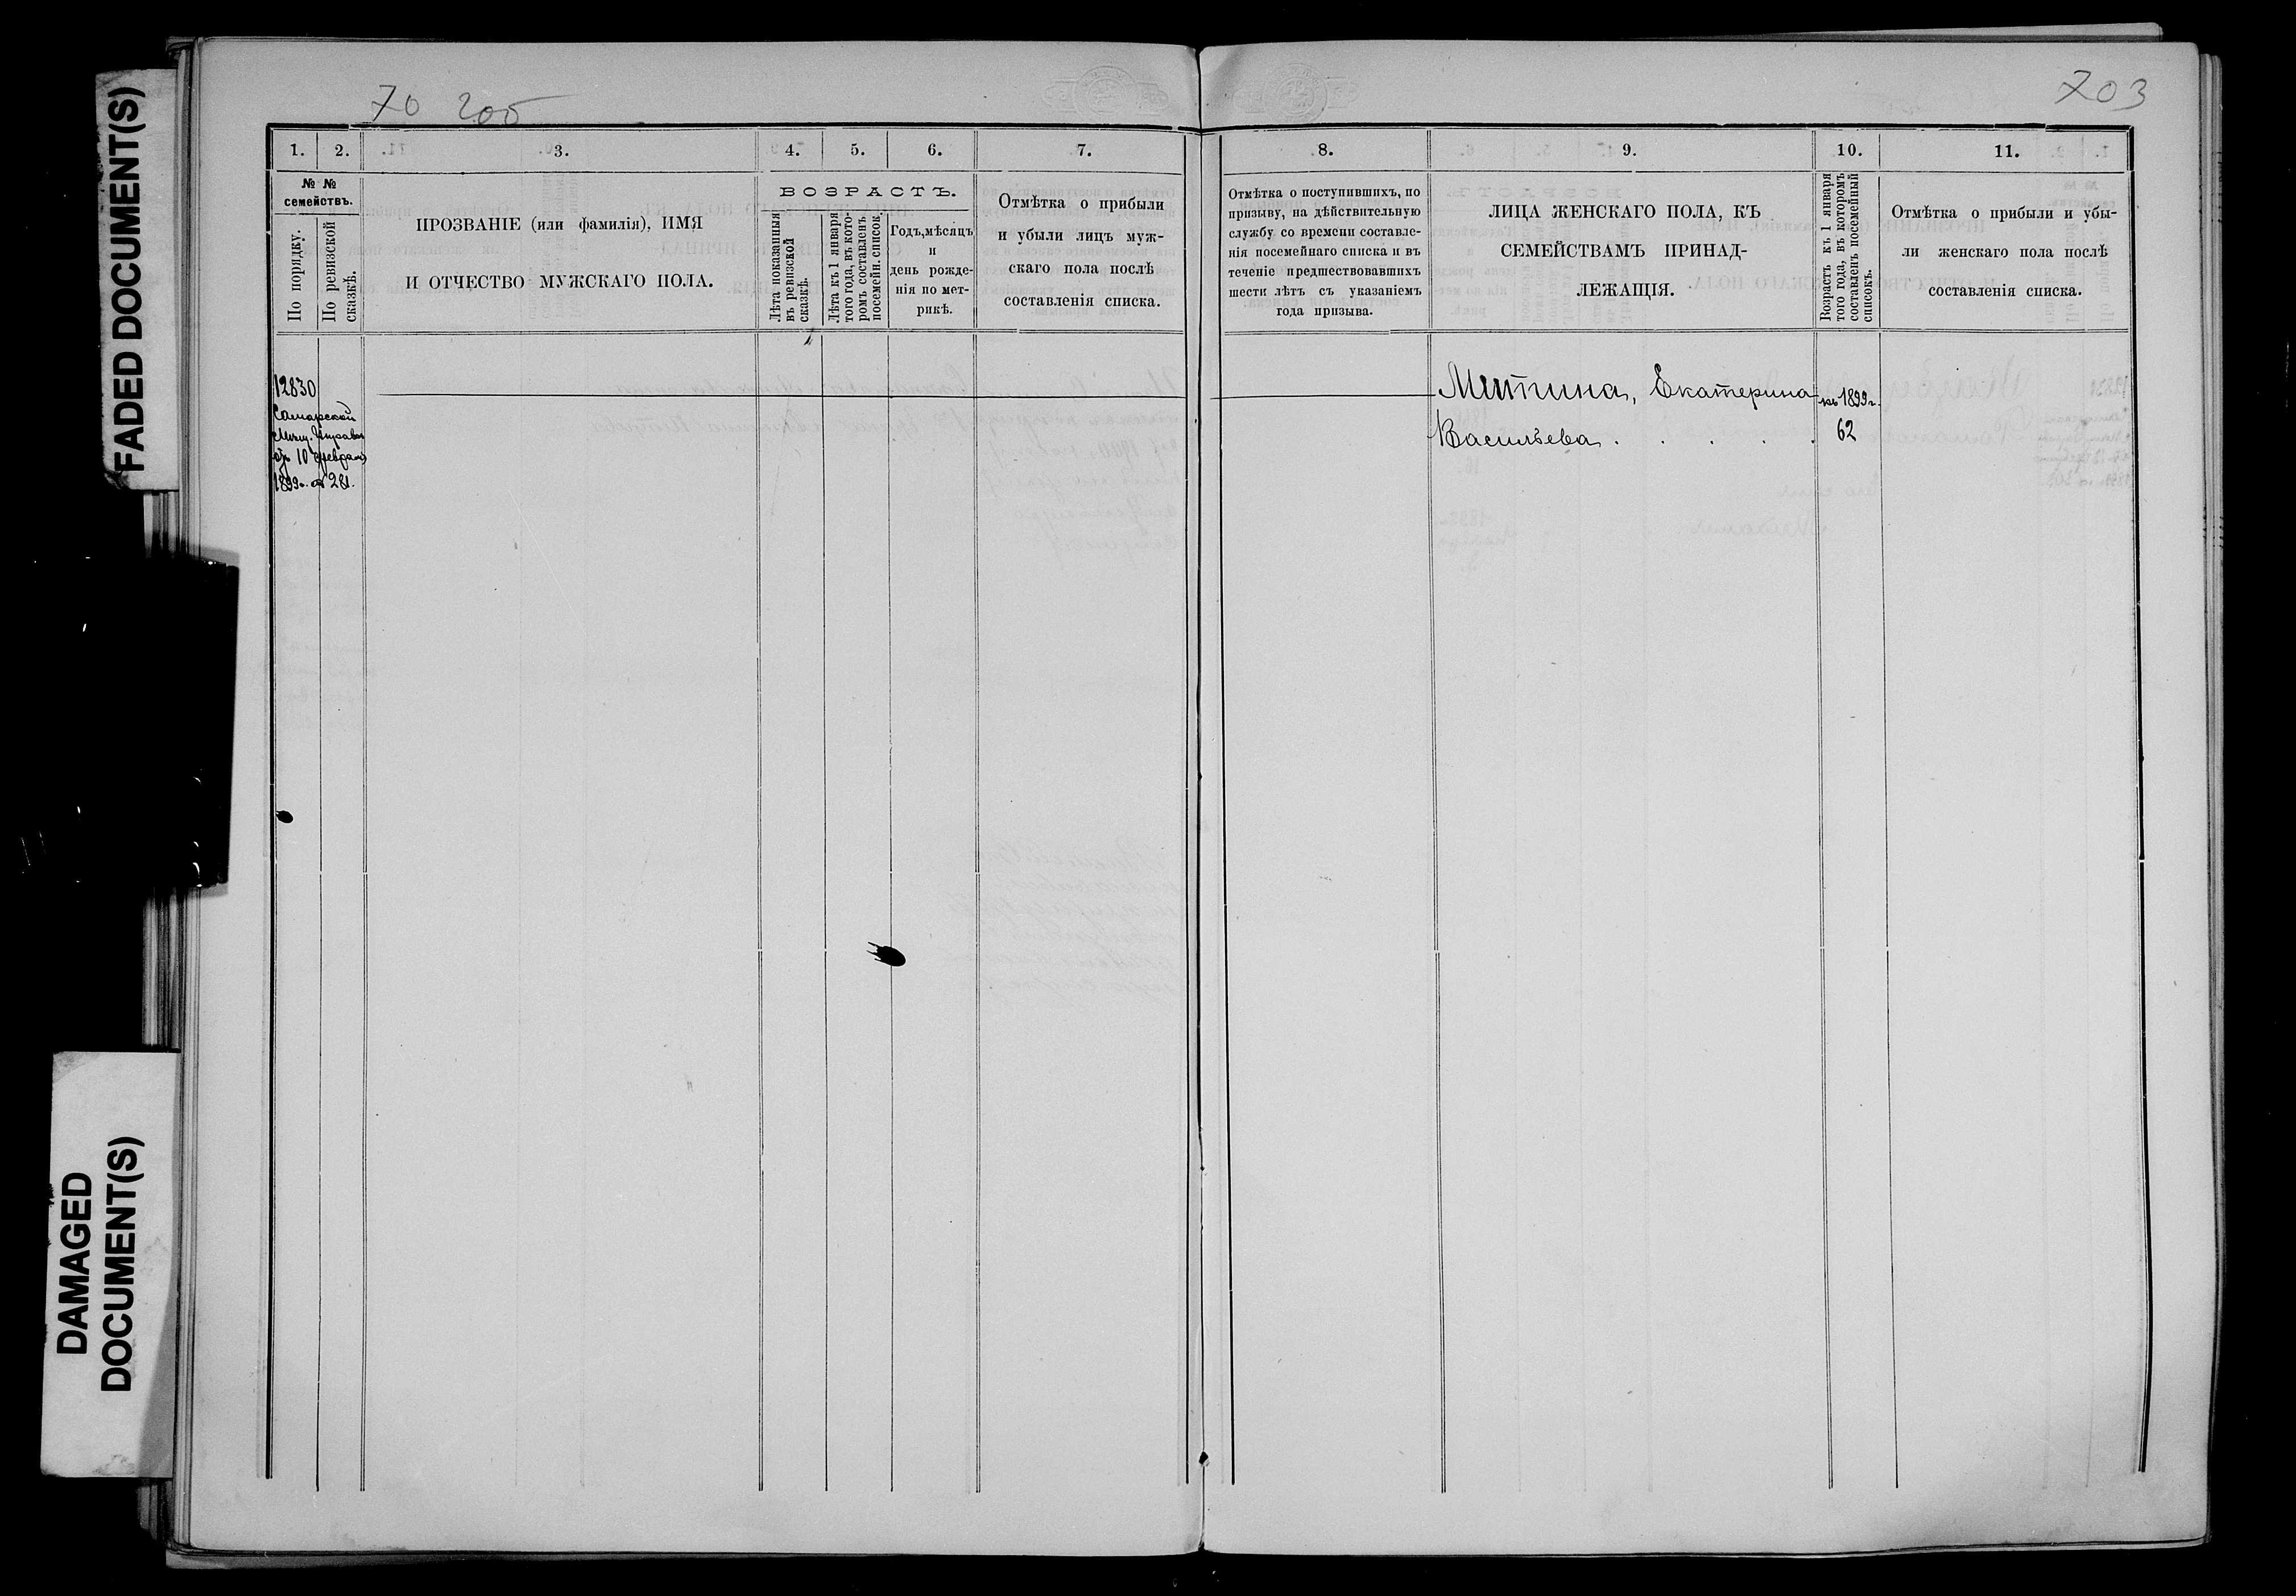 FADED DOCUMENT(S)
DAMAGED
DOCUMENT(S)
70 205
703
1. 2. 3. 4. 5. 6. 7.
№ №
семействъ.
По порядку.
По ревизской
сказкѣ.
ПРОЗВАНІЕ (или фамилія), ИМЯ
И ОТЧЕСТВО МУЖСКАГО ПОЛА.
ВОЗРАСТЪ.
Лѣта показанныя
въ ревизской
сказкѣ.
Лѣта къ 1 января
того года, въ кото-
ромъ составленъ
посемейн. список.
Годъ, мѣсяцъ
и
день рожде-
нія по мет-
рикѣ.
Отмѣтка о прибыли
и убыли лицъ муж-
скаго пола послѣ
составленія списка.
8. 9. 10. 11.
Отмѣтка о поступившихъ, по
призыву, на дѣйствительную
службу со времени составле-
нія посемейнаго списка и въ
теченіе предшествовавшихъ
шести лѣтъ съ указаніемъ
года призыва.
ЛИЦА ЖЕНСКАГО ПОЛА, КЪ
СЕМЕЙСТВАМЪ ПРИНАД-
ЛЕЖАЩІЯ.
Возрастъ къ 1 января
того года, въ которомъ
составленъ посемейный
списокъ.
Отмѣтка о прибыли и убы-
ли женскаго пола послѣ
составленія списка.
12830
Самарской
Мѣщ. Управы
отъ 10 февраля
1899г. № 281.
Митина, Екатерина
Васильева . . . . .
къ 1899 г.
62